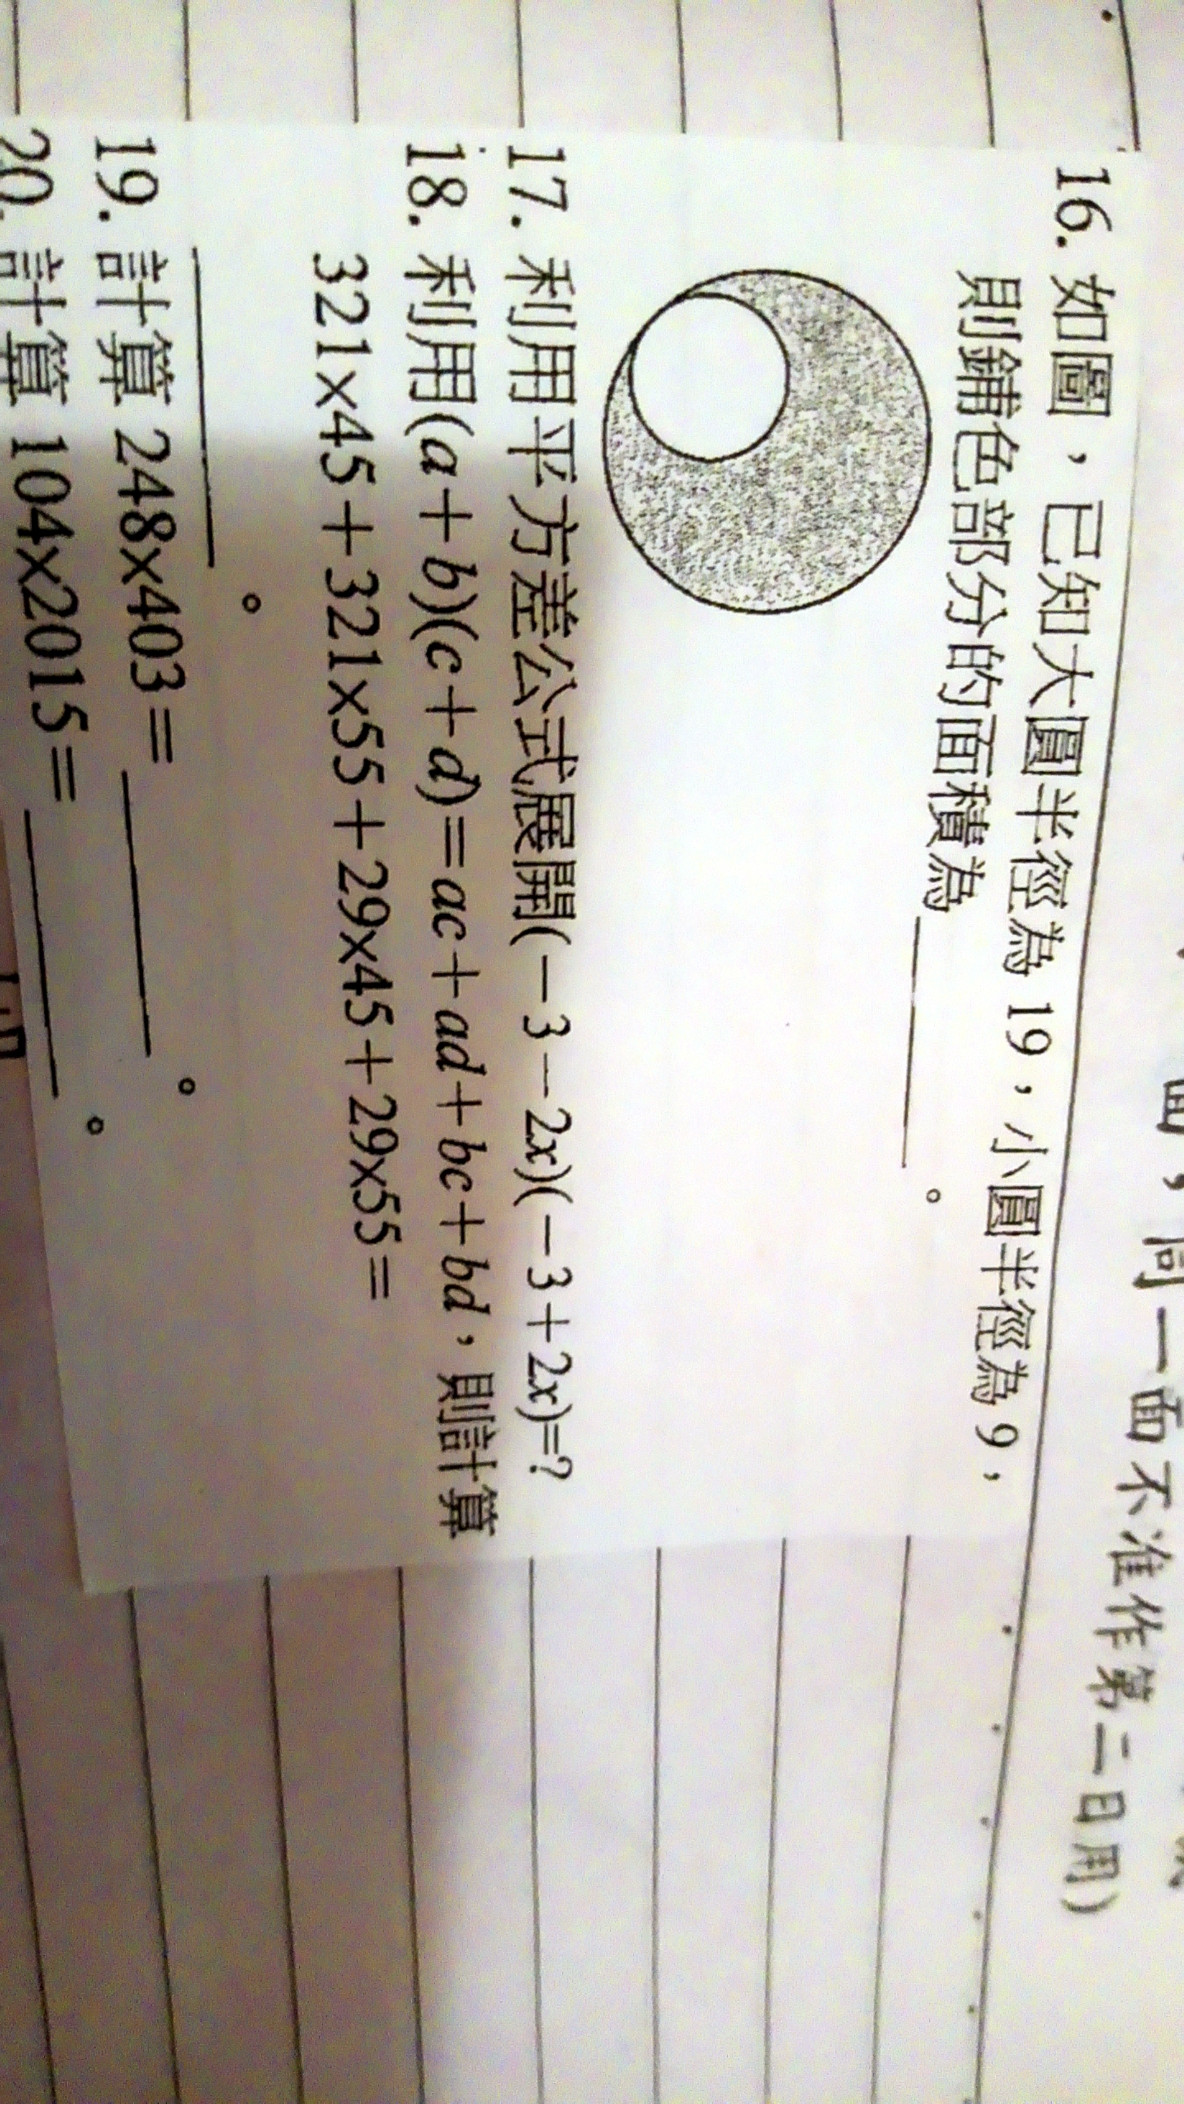 面，同一面不准作第二日用）
16. 如圖，已知大圓半徑為 19，小圓半徑為 9，
則鋪色部分的面積為________。
17. 利用平方差公式展開(－3－2x)(－3＋2x)=?
18. 利用(a＋b)(c＋d)=ac＋ad＋bc＋bd，則計算
321×45＋321×55＋29×45＋29×55＝
________。
19. 計算 248×403＝________。
20. 計算 104×2015＝________。